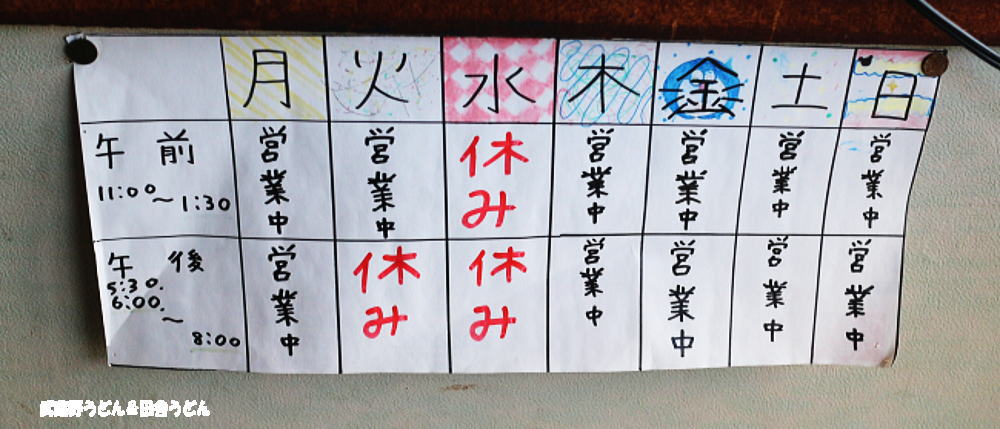 月 火 水 木 金 土 日
午前 営業中 営業中 休み 営業中 営業中 営業中 営業中
11:00～1:30
午後 営業中 休み 休み 営業中 営業中 営業中 営業中
5:30.
6:00.
～
8:00
武蔵野うどん＆田舎うどん